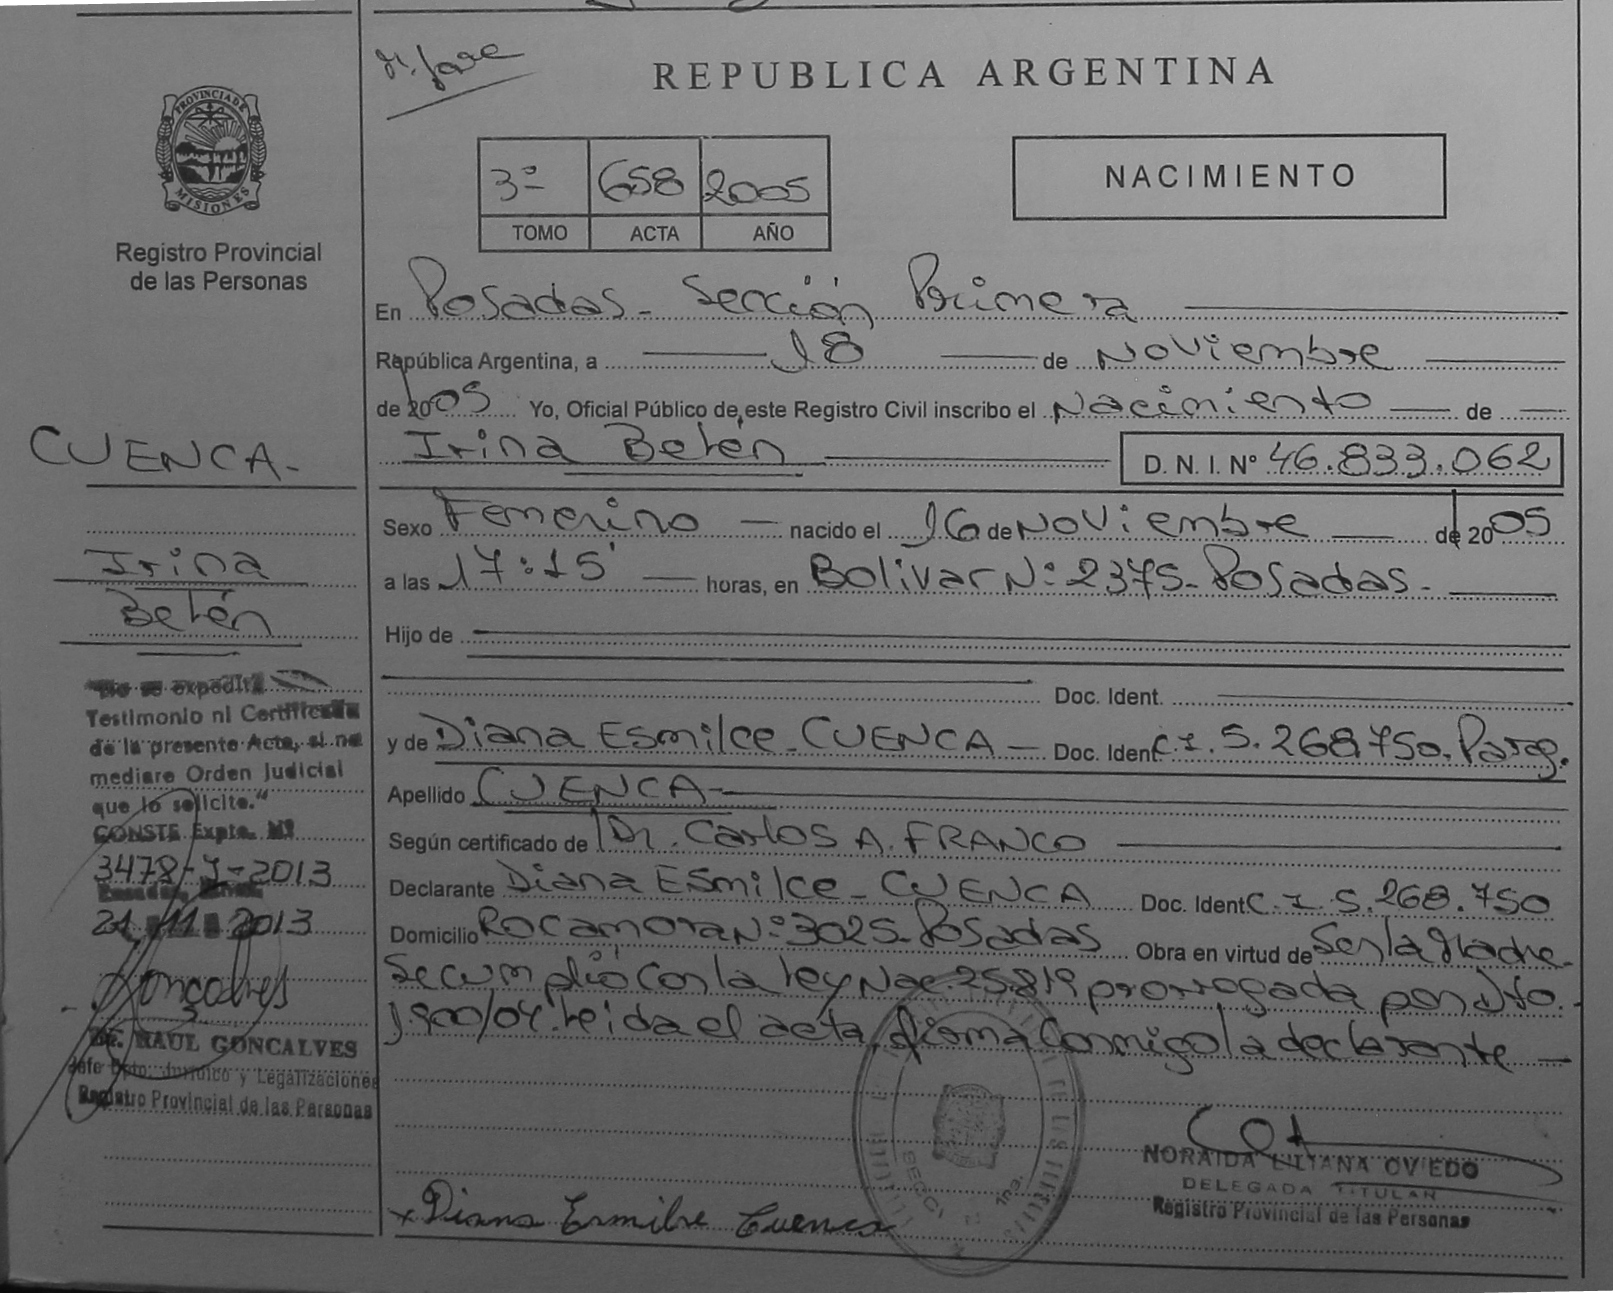 REPUBLICA ARGENTINA
PROVINCIA DE
MISIONES
Registro Provincial
de las Personas
3º 658 2005
TOMO ACTA AÑO
NACIMIENTO
En Posadas - Sección Primera
República Argentina, a 18 de Noviembre
de 2005 Yo, Oficial Público de este Registro Civil inscribo el Nacimiento de
Irina Belén D. N. I. Nº 46.833.062
Sexo Femenino nacido el 16 de Noviembre de 2005
a las 17:15 horas, en Bolivar Nº 2375 - Posadas -
Hijo de
Doc. Ident.
y de Diana Esmilce - CUENCA - Doc. Ident. C.I. 5.268.750. Parag.
Apellido CUENCA -
Según certificado de Dr. Carlos A. FRANCO
Declarante Diana Esmilce - CUENCA Doc. Ident C.I. 5.268.750
Domicilio Rocamora Nº 3025 - Posadas Obra en virtud de Ser la Madre -
Se cumplió con la ley Nac. 25.819 prorrogada por Dto.
1900/04. Leida el acta, firma conmigo la declarante -
CUENCA -
Irina
Belén
No se expedirá
Testimonio ni Certificado
de la presente Acta, si no
mediare Orden Judicial
que lo solicite."
CONSTE Expte. Nº
3478-J-2013
21 11 2013
Goncalves
Dr. RAUL GONCALVES
Jefe Dpto. Jurídico y Legalizaciones
Registro Provincial de las Personas
x Diana Esmilse Cuenca
NORAIDA LILIANA OVIEDO
DELEGADA TITULAR
Registro Provincial de las Personas